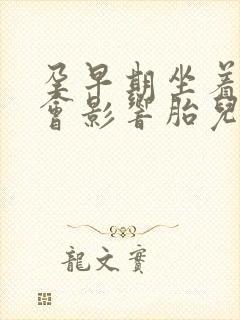 孕早期坐着
會影響胎兒
龍文實